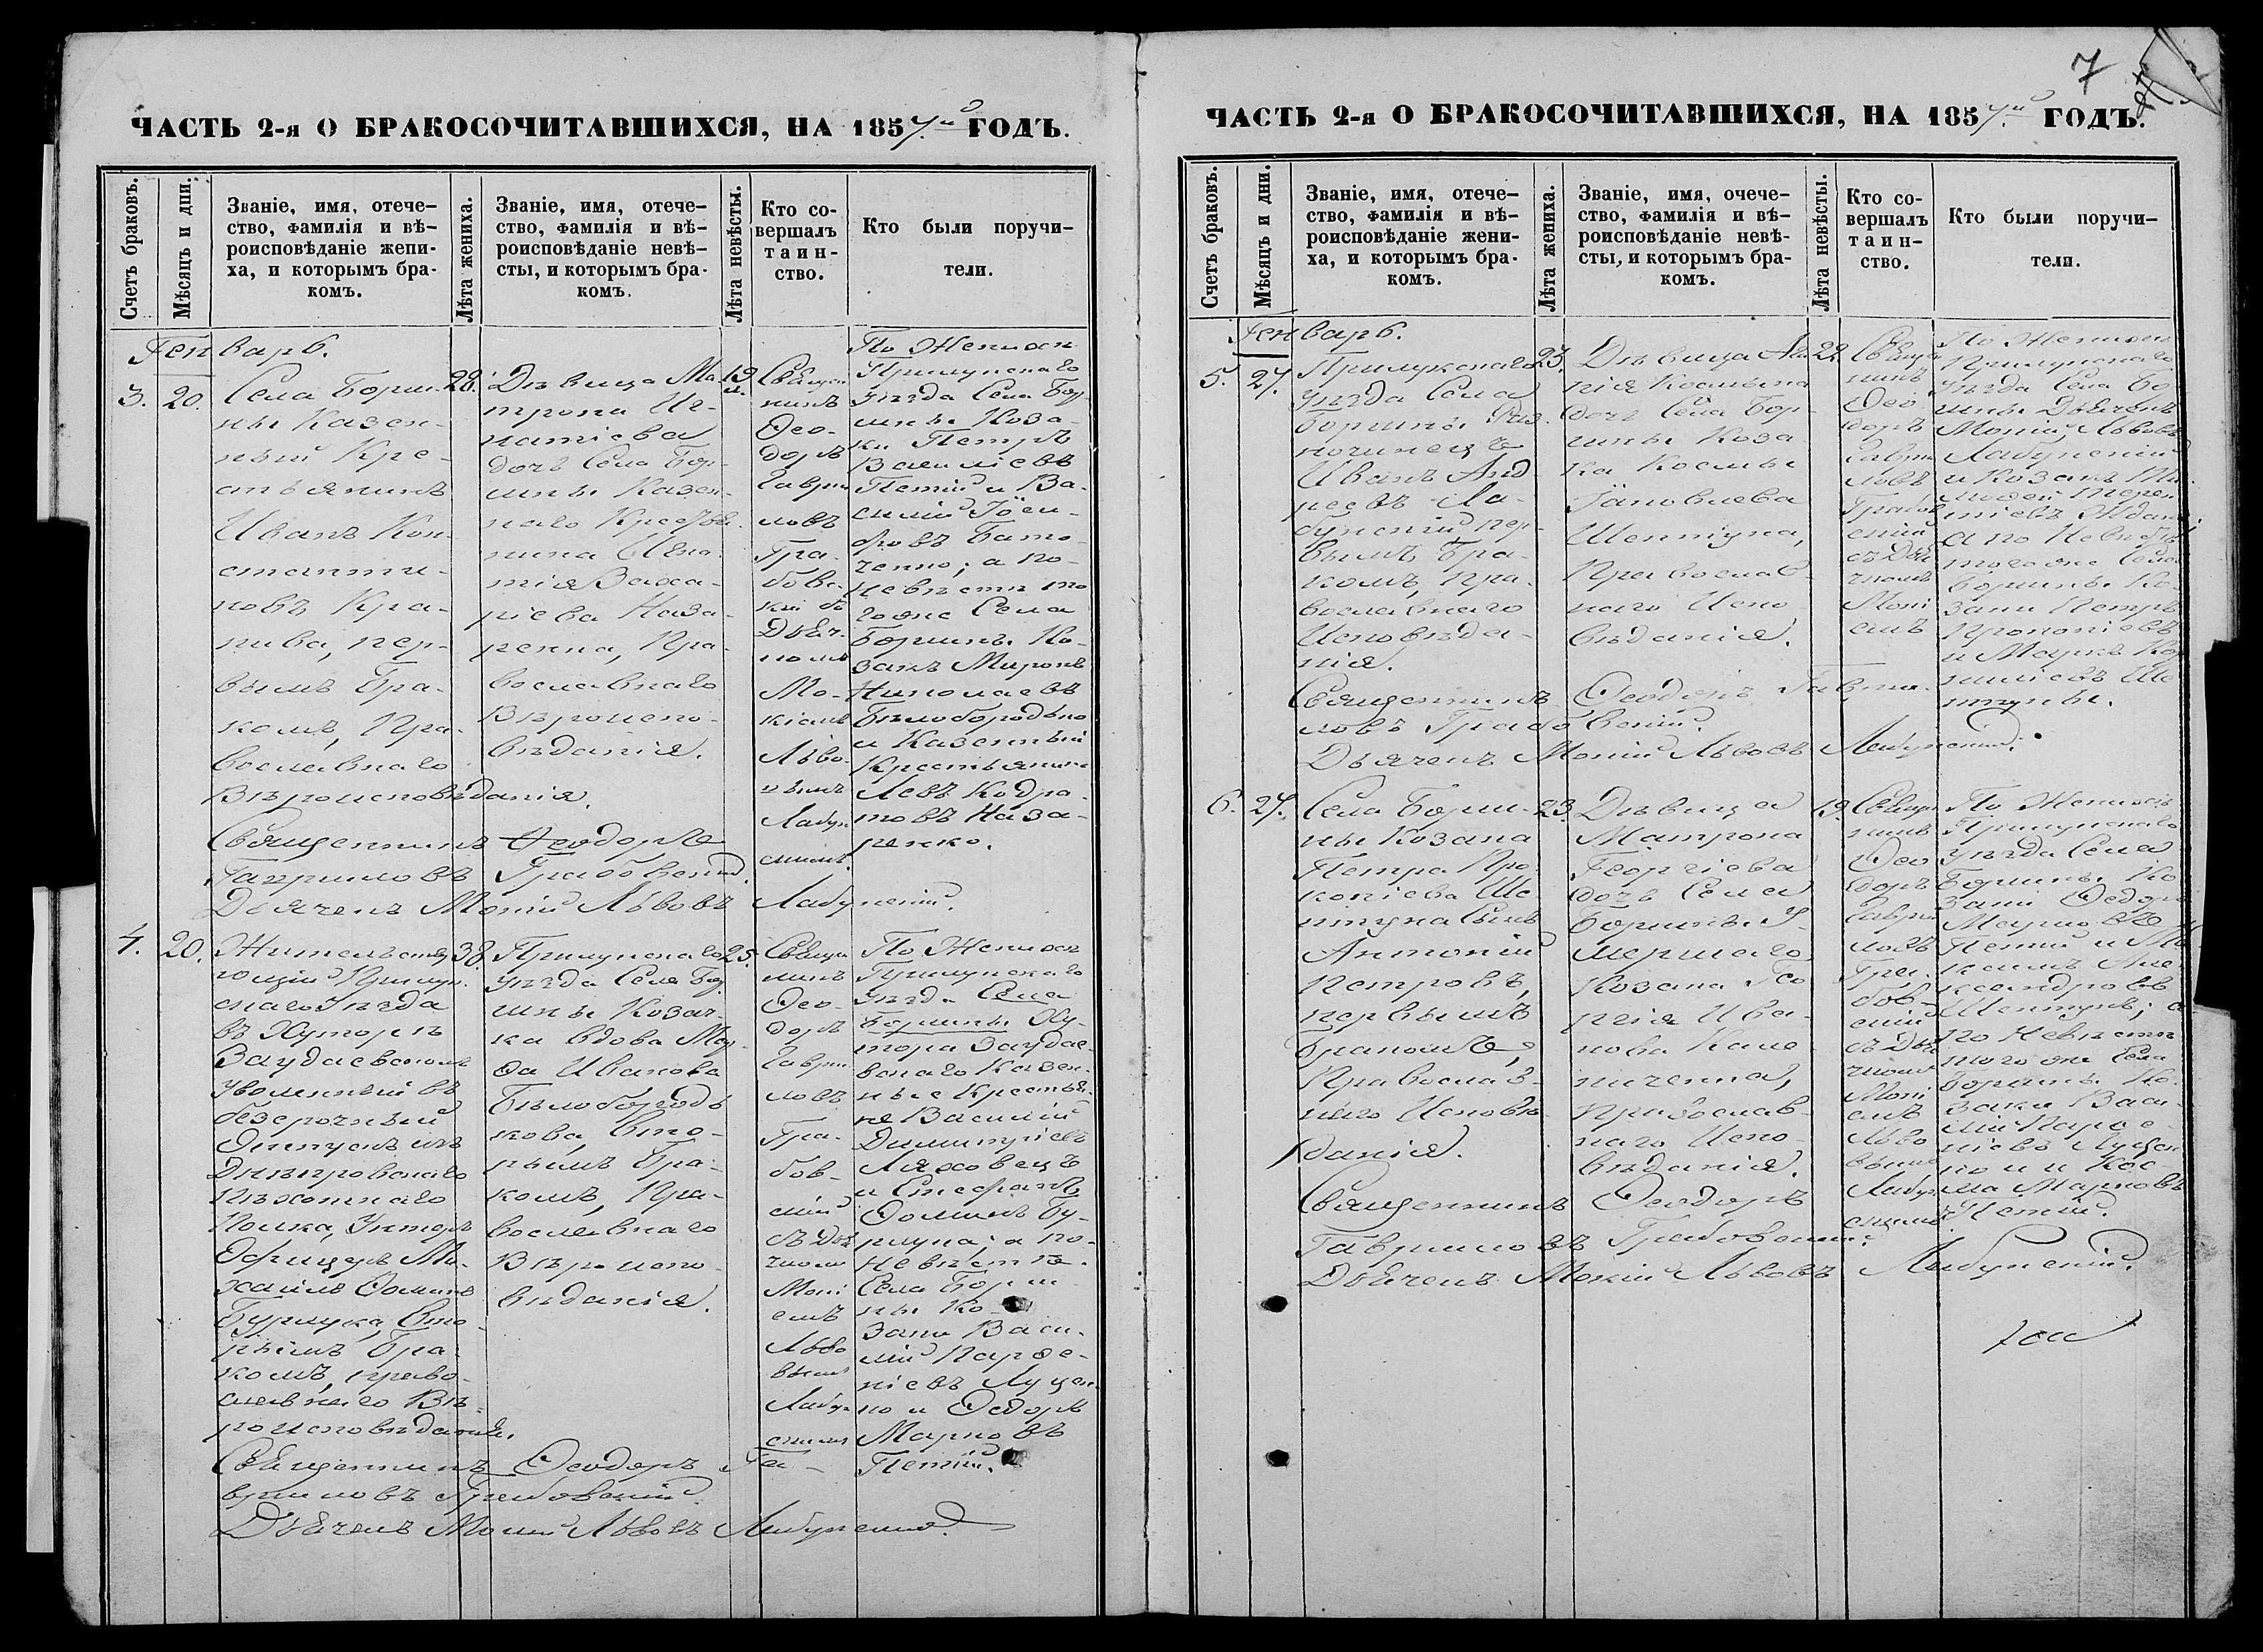 ЧАСТЬ 2-я О БРАКОСОЧИТАВШИХСЯ, НА 1857.й ГОДЪ.
Счетъ браковъ.
Мѣсяцъ и дни.
Званіе, имя, отече-
ство, фамилія и вѣ-
роисповѣданіе жени-
ха, и которымъ бра-
комъ.
Лѣта жениха.
Званіе, имя, отече-
ство, фамилія и вѣ-
роисповѣданіе невѣ-
сты, и которымъ бра-
комъ.
Лѣта невѣсты.
Кто со-
вершалъ
таин-
ство.
Кто были поручи-
тели.
Генварь.
3.
20.
Села Борш-
ны Казен-
ный Кре-
стьянинъ
Иванъ Кон-
станти-
новъ Кра-
пива, пер-
вымъ Бра-
комъ, Пра-
вославнаго
Вѣроисповѣданія.
28.
Дѣвица Ма-
трона Иг-
натіева
дочь Села Бор-
шны Казен-
наго Крестья-
нина Игна-
тія Заха-
ріева Наза-
ренка, Пра-
вославнаго
Вѣроиспо-
вѣданія.
19
Священ-
никъ
Ѳео-
доръ
Гаври-
ловъ
Гра-
бовс-
кій съ
Дьяч-
комъ
Мо-
кіемъ
Льво-
вымъ
Лабун-
скимъ
По Женихѣ
Прилукскаго
Уѣзда Села Бор-
шны Коза-
ки Петръ
Василіевъ
Петій и Ва-
силій Іоси-
фовъ Бато-
ченко; а по
Невѣстѣ то
гоже Села
Боршны Ко-
закъ Миронъ
Николаевъ
Бѣлобородько
и Казенный
Крестьянинъ
Левъ Кодра-
товъ Наза-
ренко.
Священникъ Ѳеодоръ
Гавриловъ Грабовскій.
Дьячекъ Мокій Львовъ Лабунскій.
4.
20.
Жительству-
ющій Прилук-
скаго Уѣзда
въ Хуторѣ
Заудаевскомъ
Уволенный въ
безсрочный
Отпускъ изъ
Днѣпровскаго
Пѣхотнаго
Полка, Унтеръ
Офицеръ Ми-
хаилъ Ѳоминъ
Бурлука, Вто-
рымъ Бра-
комъ, право-
славнаго Вѣ-
роисповѣданія.
38.
Прилукскаго
Уѣзда Села Бор-
шны Козач-
ка вдова Мар-
ѳа Иванова
Бѣлобородь
кова, вто-
рымъ Бра-
комъ, Пра-
вославнаго
Вѣроиспо-
вѣданія.
25.
Священ-
никъ
Ѳео-
доръ
Гаври-
ловъ
Гра-
бов-
скій
съ Дья-
чкомъ
Моки
емъ
Льво
вымъ
Лабун
скимъ
По Женихѣ
Прилукскаго
Уѣзда Села
Боршны Ху-
тора Заудае-
вскаго Казен-
ные Крестья-
не Василій
Димитріевъ
Ляховецъ
и Стефанъ
Ѳоминъ Бу-
рлука; а по-
Невѣстѣ.
Села Борш
ны Ко-
заки Васи-
лій Парѳе-
ніевъ Луцен-
ко и Ѳедоръ
Марковъ
Петій.
Священникъ Ѳеодоръ Га-
вриловъ Грабовскій.
Дьячекъ Мокій Львовъ Лабунскій.
7
ЧАСТЬ 2-я О БРАКОСОЧИТАВШИХСЯ, НА 1857.й ГОДЪ.
Счетъ браковъ.
Мѣсяцъ и дни.
Званіе, имя, отече-
ство, фамилія и вѣ-
роисповѣданіе жени-
ха, и которымъ бра-
комъ.
Лѣта жениха.
Званіе, имя, очече-
ство, фамилія и вѣ-
роисповѣданіе невѣ-
сты, и которымъ бра-
комъ.
Лѣта невѣсты.
Кто со-
вершалъ
таин-
ство.
Кто были поручи-
тели.
Генварь.
5.
27.
Прилукскаго
Уѣзда Села
Боршны Раз-
ночинецъ
Иванъ Анд-
реевъ Ла-
бунскій пер-
вымъ Бра-
комъ, Пра-
вославнаго
Исповѣда-
нія.
23.
Дѣвица
Космина
дочь Села Бор-
шны Коза-
ка Космы
Іаковлева
Шептуна,
Православ-
наго Испо
вѣданія.
22.
Священ
никъ
Ѳео
доръ
Гаври
ловъ
Грабов
скій
съ Дья
чкомъ
Мокі
емъ
По Женихѣ
Прилукскаго
Уѣзда Села Бо
ршны Дьячекъ
Мокій Львовъ
Лабунскій
и Козакъ Ти-
моѳей Терен
тіевъ
а по Невѣстѣ
тогоже Села
Боршны Ко-
заки Петръ
Прокопіевъ
и Марко
Ше
птуны.
Священникъ Ѳеодоръ Гаври-
ловъ Грабовскій.
Дьячекъ Мокій Львовъ Лабунскій.
6.
27.
Села Борш-
ны Козака
Петра Про
копіева Ше
птуна Сынъ
Антоній
Петровъ,
первымъ
Бракомъ,
Православ-
наго Исповѣ
данія.
23.
Дѣвица
Матрона
Георгіева
дочь Села
Боршны У-
мершаго
Козака Гео
ргія Ива-
нова Кале-
ниченка,
Православ-
наго Испо
вѣданія.
19.
Священ
никъ
Ѳео
доръ
Гаври
ловъ
Гра-
бов-
скій
съ Дья
чкомъ
Мокі
емъ
Льво
вымъ
Лабун
скимъ
По Женихѣ
Прилукскаго
Уѣзда Села
Боршны Ко
заки Ѳедоръ
Марковъ
Петій и Ма
ксимъ Але
ксандровъ
Шептунъ; а
по Невѣстѣ
тогоже Села
Боршны Ко-
заки Васи-
лій Парѳе-
ніевъ Луцен
ко и Кос-
ма Марковъ
Петій.
Священникъ Ѳеодоръ
Гавриловъ Грабовскій.
Дьячекъ Мокій Львовъ Лабунскій.